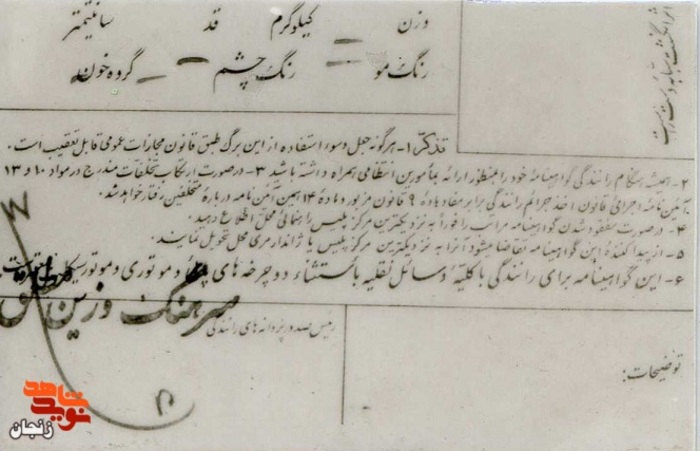 اثر انگشت سبابه دست راست
وزن کیلوگرم قد سانتیمتر
رنگ مو رنگ چشم گروه خون
تذکر ۱- هرگونه جعل و سوء استفاده از این برگ طبق قانون مجازات عمومی قابل تعقیب است.
۲- همیشه هنگام رانندگی گواهینامه خود را بمنظور ارائه بمأمورین انتظامی همراه داشته باشید ۳- در صورت ارتکاب تخلفات مندرج در مواد ۱۰ و ۱۳
آئین نامه اجرائی قانون اخذ جرائم رانندگی برابر مفاد ماده ۹ قانون مزبور و ماده ۱۴ همین آئین نامه درباره متخلفین رفتار خواهد شد.
۴- در صورت مفقود شدن گواهینامه مراتب را فوراً به نزدیکترین مرکز پلیس راهنمائی محل اطلاع دهید.
۵- از پیدا کننده این گواهینامه تقاضا میشود آنرا به نزدیکترین مرکز پلیس یا ژاندارمری محل تحویل نمایند.
۶- این گواهینامه برای رانندگی با کلیه وسائل نقلیه باستثناء دوچرخه های پائی و موتوری و موتورسیکلت
سرهنگ وزین
رئیس صدور پروانه های رانندگی
توضیحات:
شاهد
نوید
زنجان